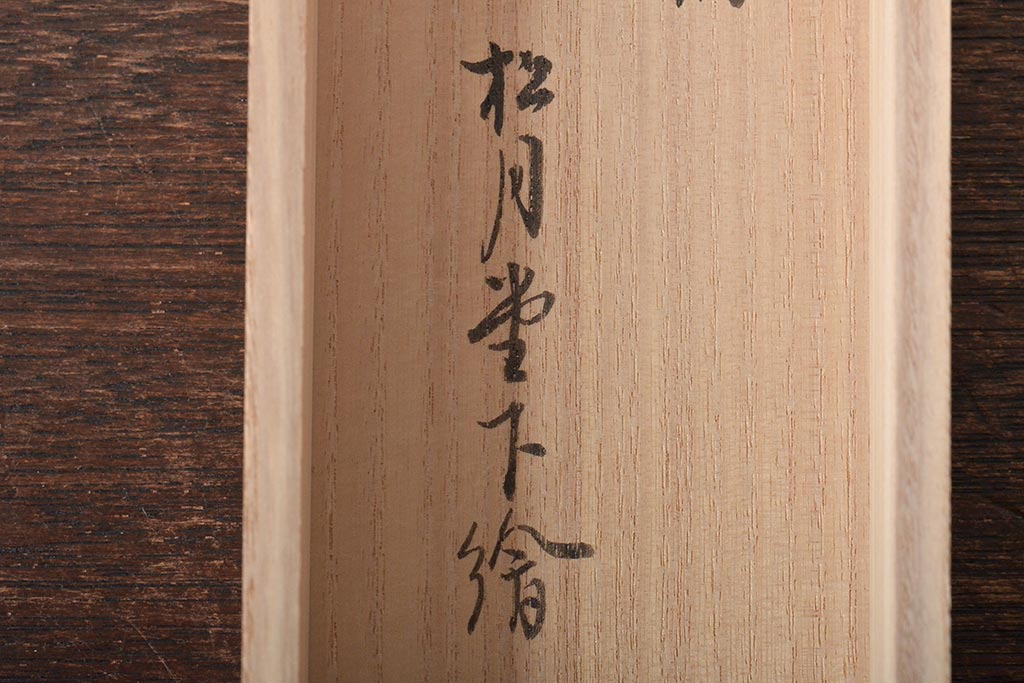 松月堂下繪